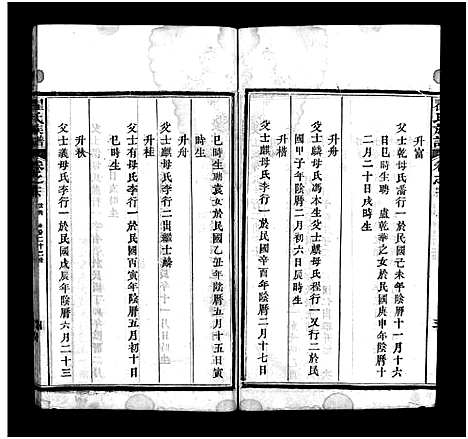 升富
父士乾母氏潘行一於民國己未年陰曆十一月十六
日巳時生聘 盧乾華之女於民國庚申年陰曆十
二月二十日戌時生
升舟
父士麟母氏馮木生父士麒母氏程行一又行二於民
國甲子年陰曆二月初六日辰時生
升楷
父士麒母氏李行一於民國辛酉年陰曆二月十七日
時生
升舟
父士麒母氏李行二出繼士麟
巳時生聘袁女於民國乙丑年陰曆五月十五日寅
時生
升桂
父士有母氏李行一於民國丙寅年陰曆五月初十日
巳時生
升秋
父士義母氏李行一於民國戊辰年陰曆六月二十三
氏族譜